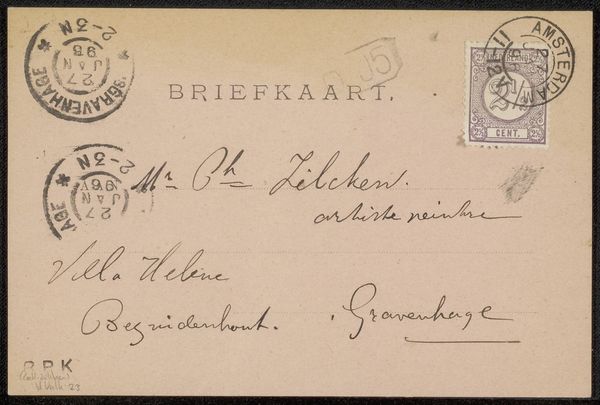 'SGRAVENHAGE
2-3N
27
JAN
96
AMSTERDAM
NEDERLAND
2½
CENT.
BRIEFKAART.
2-3N
27
JAN
96
Mr Ph Zilcken.
artiste peintre
Villa Helene
Bezuidenhout.
Gravenhage
R.P.K